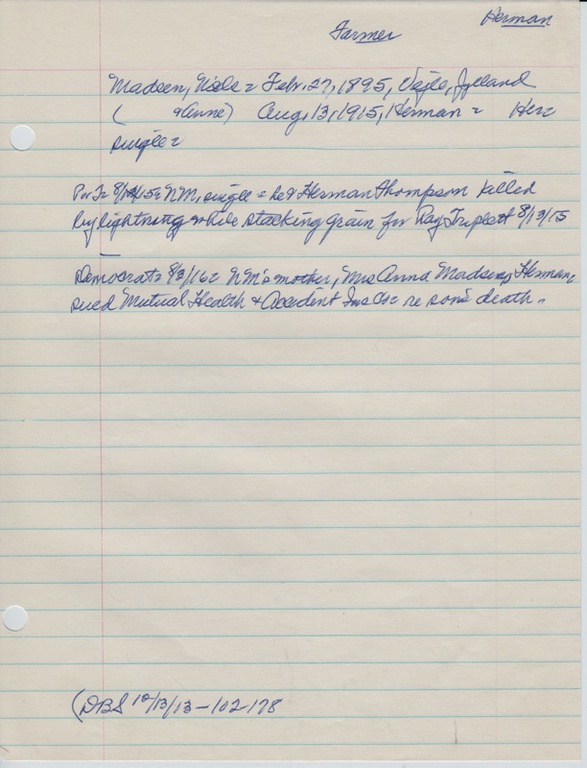 Herman
Farmer
Madsen, Niels = Febr. 27, 1895, Vejle, Jylland
( &Anne) Aug. 13, 1915, Herman = Her=
single=
8/ /15= N.M., single = he & Herman Thompson killed
by lightning while stacking grain for Ray Triplett 8/13/15
Democrat= 8/3/16= N.M's mother, Mrs Anna Madsen, Herman,
sued Mutual Health & Accident Ins Co= re son's death.
(DBS 10/13/13-102-178